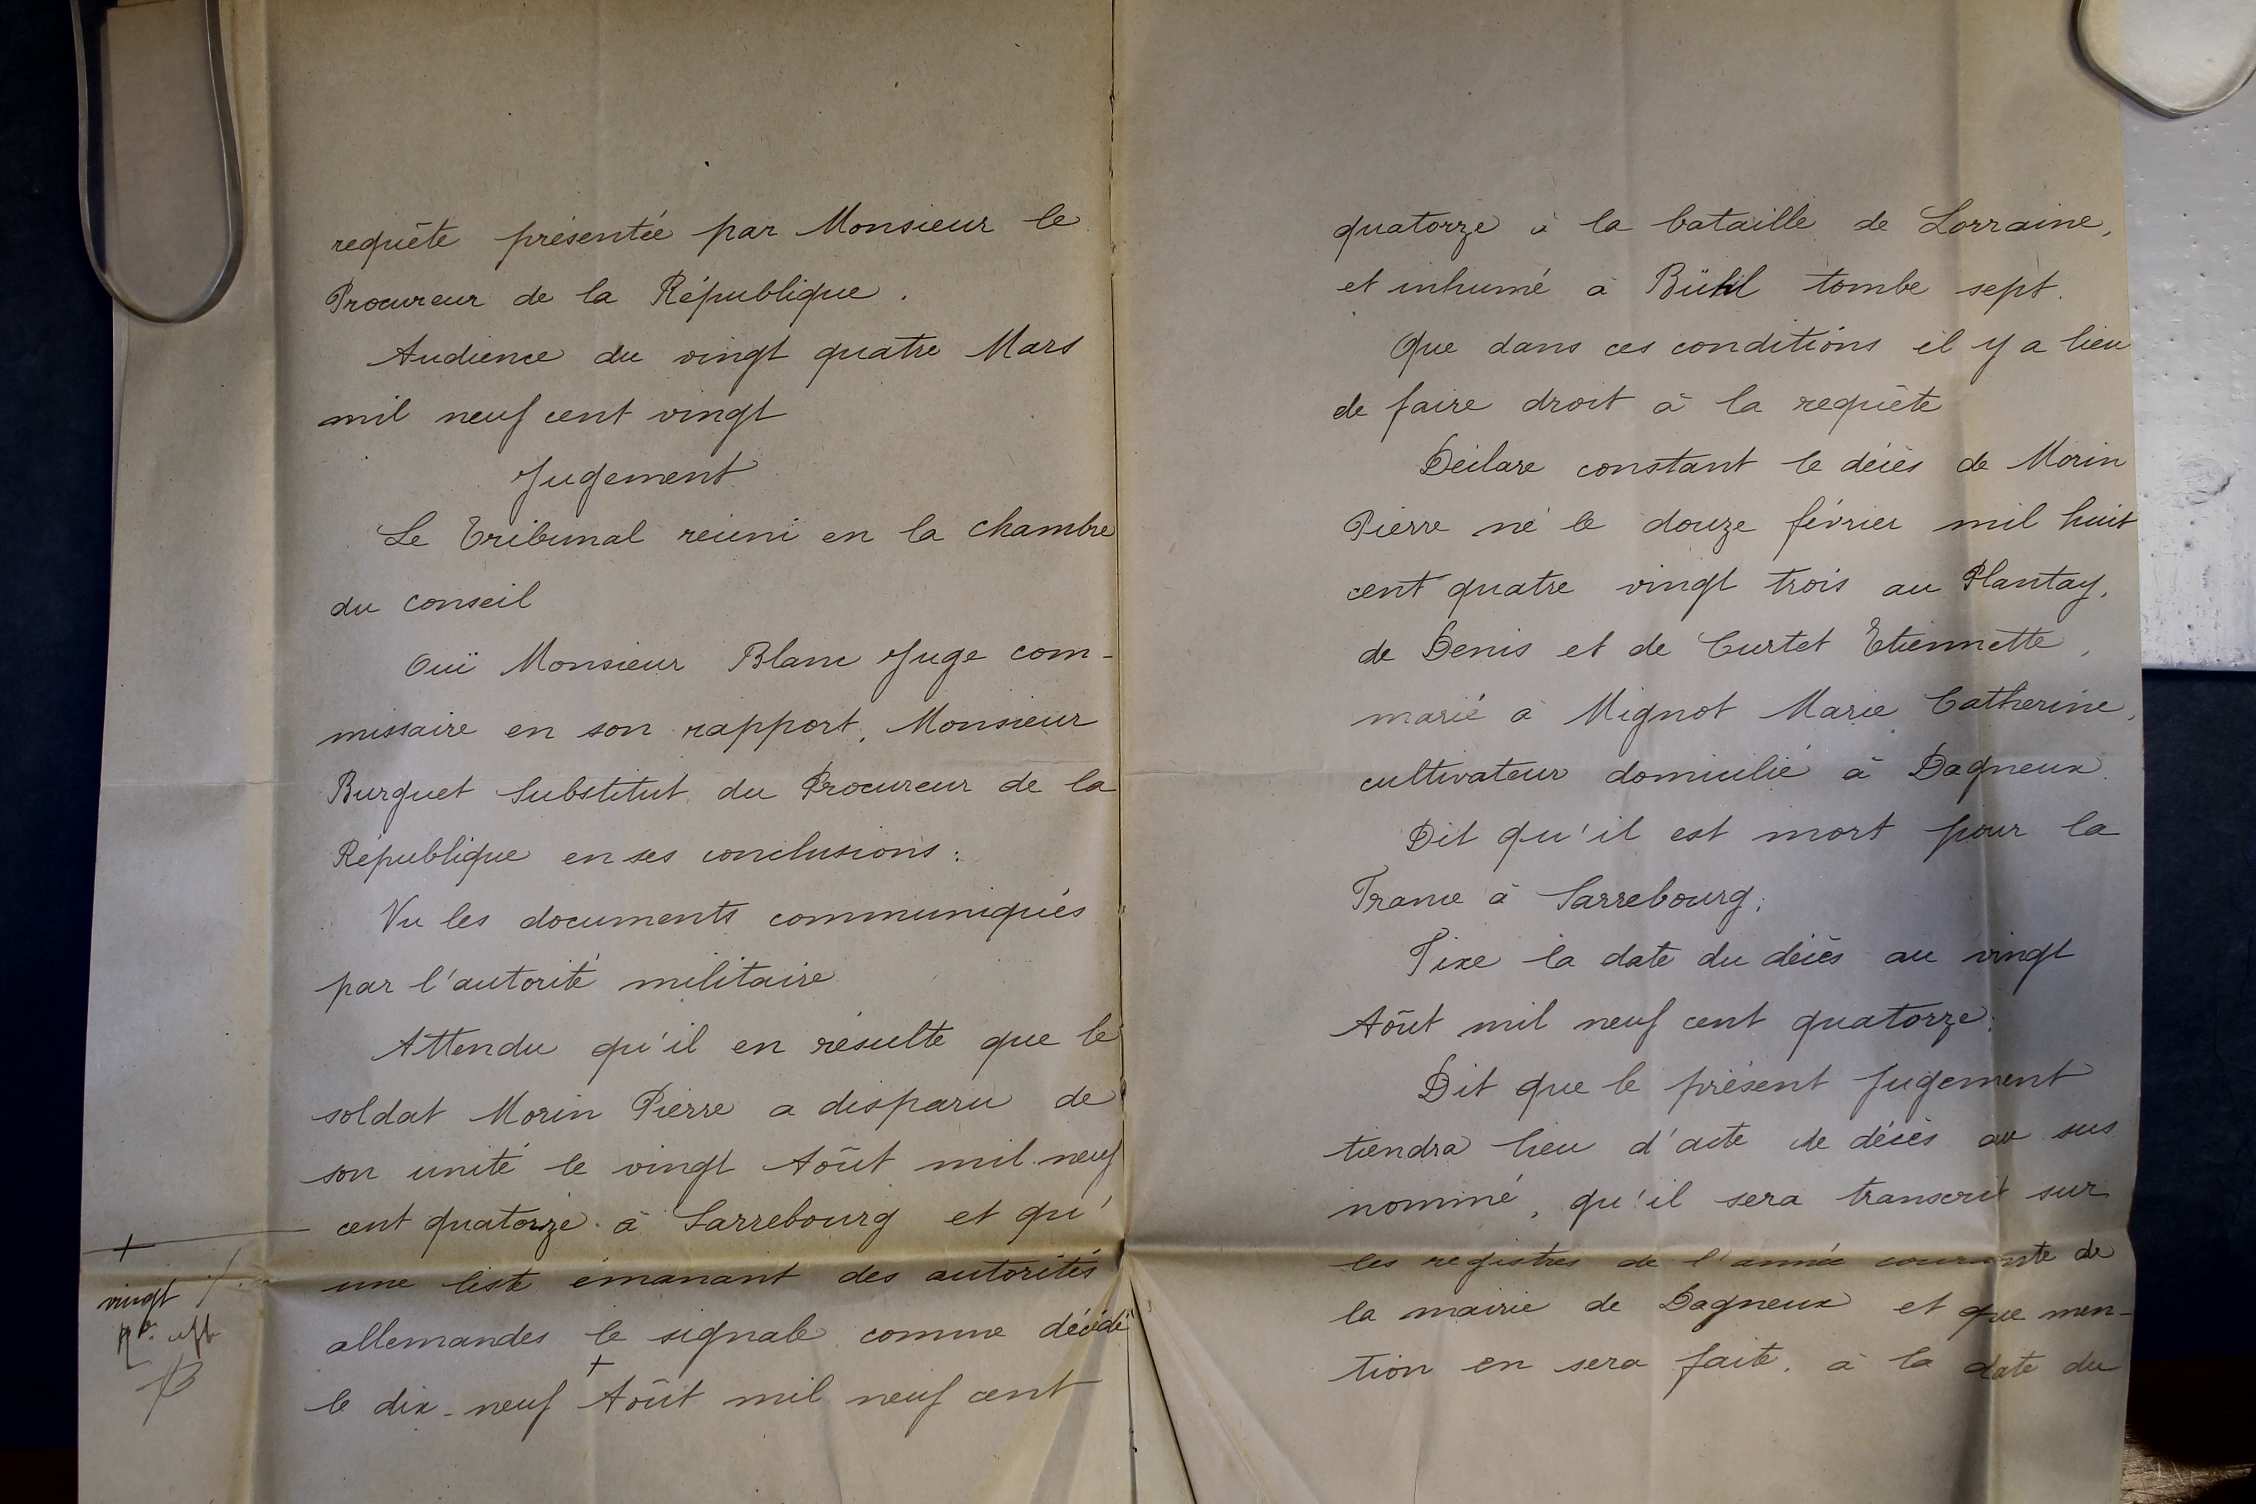 requête présentée par Monsieur le
Procureur de la République.
Audience du vingt quatre Mars
mil neuf cent vingt
Jugement
Le Tribunal réuni en la chambre
du conseil
Ouï Monsieur Blanc Juge com-
missaire en son rapport, Monsieur
Burguet Substitut du Procureur de la
République en ses conclusions:
Vu les documents communiqués
par l'autorité militaire
Attendu qu'il en résulte que le
soldat Morin Pierre a disparu de
son unité le vingt Aôut mil neuf
cent quatorze à Sarrebourg et qu'
une liste émanant des autorités
allemandes le signale comme décédé
le dix-neuf + Aôut mil neuf cent
+
vingt
quatorze à la bataille de Lorraine,
et inhumé à Bühl tombe sept.
Que dans ces conditions il y a lieu
de faire droit à la requête
Déclare constant le décès de Morin
Pierre né le douze février mil huit
cent quatre vingt trois au Plantay,
de Denis et de Curtet Etiennette,
marié à Mignot Marie Catherine,
cultivateur domicilié à Dagneux.
Dit qu'il est mort pour la
France à Sarrebourg;
Fixe la date du décès au vingt
Aôut mil neuf cent quatorze;
Dit que le présent Jugement
tiendra lieu d'acte de décès au sus
nommé, qu'il sera transcrit sur
les registres de l'année courante de
la mairie de Dagneux et que men-
tion en sera faite, à la date du